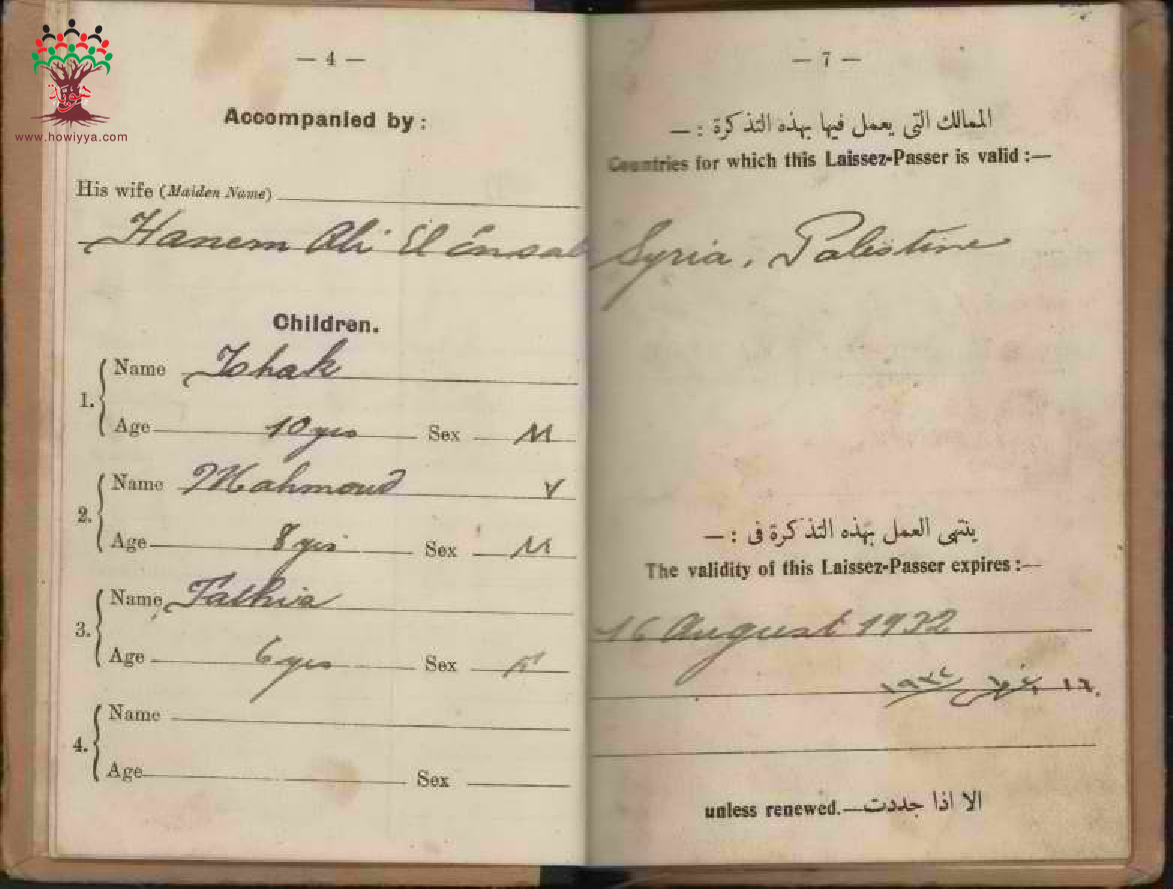 هوية
www.howiyya.com
— 4 —
Accompanied by :
His wife (Maiden Name)
Hanem Ali El Ensab
Children.
1. Name Ishak
Age 10 yrs Sex M
2. Name Mahmoud
Age 8 yrs Sex M
3. Name Fathia
Age 6 yrs Sex F
4. Name
Age Sex
— 7 —
الممالك التى يعمل فيها بهذه التذكرة : —
Countries for which this Laissez-Passer is valid :—
Syria, Palestine
ينتهى العمل بهذه التذكرة فى : —
The validity of this Laissez-Passer expires :—
16 August 1932
١٦ ١٩٣٢
unless renewed.—الا اذا جددت